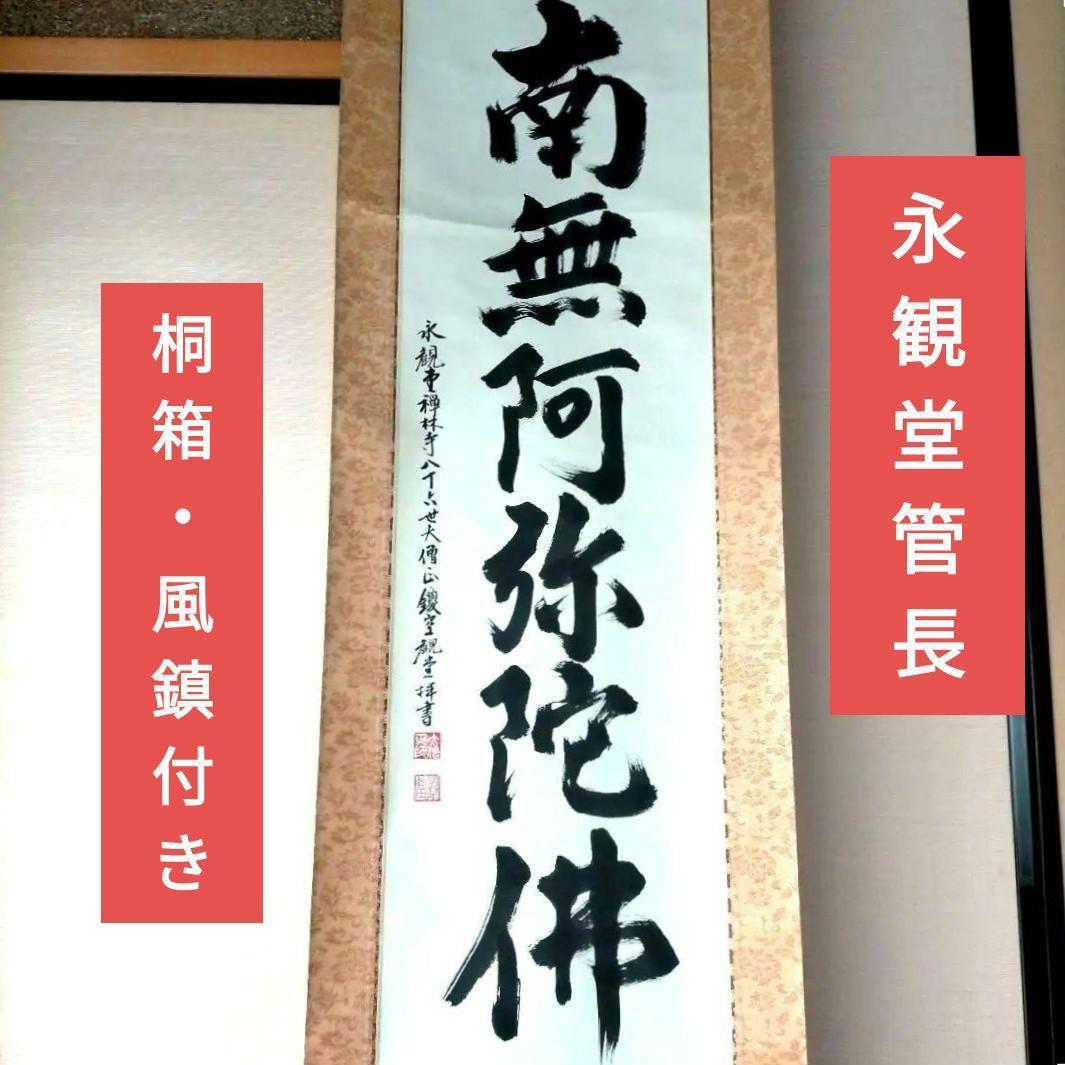 永観堂管長
南無阿弥陀佛
永観堂禅林寺八十六世大僧正鑁空観堂拝書
桐箱・風鎮付き